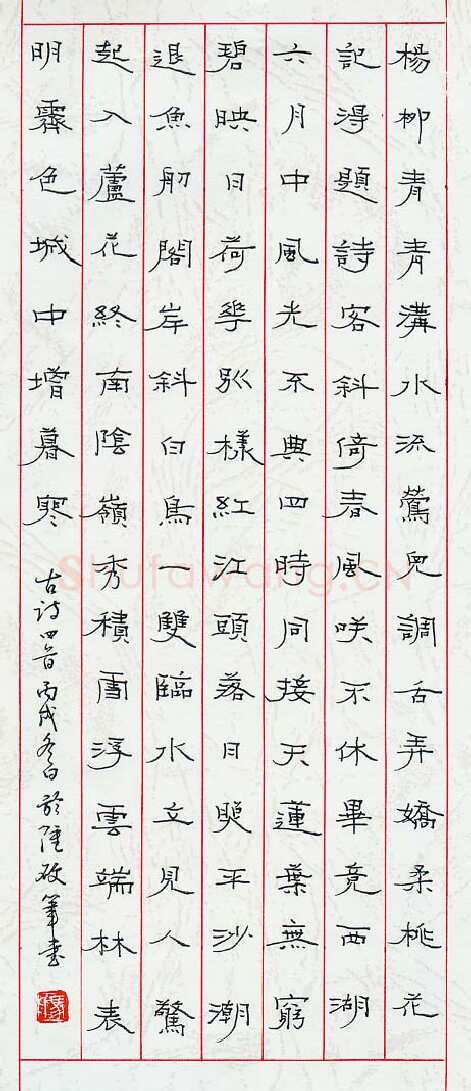 楊柳青青溝水流鶯兒調舌弄嬌柔桃花
記得題詩客斜倚春風咲不休畢竟西湖
六月中風光不與四時同接天蓮葉無窮
碧映日荷華別樣紅江頭落日照平沙潮
退魚舠閣岸斜白鳥一雙臨水立見人驚
起入蘆花終南陰嶺秀積雪浮雲端林表
明霽色城中增暮寒
古詩四首丙戌冬日於
筆書
Shufawang.CN